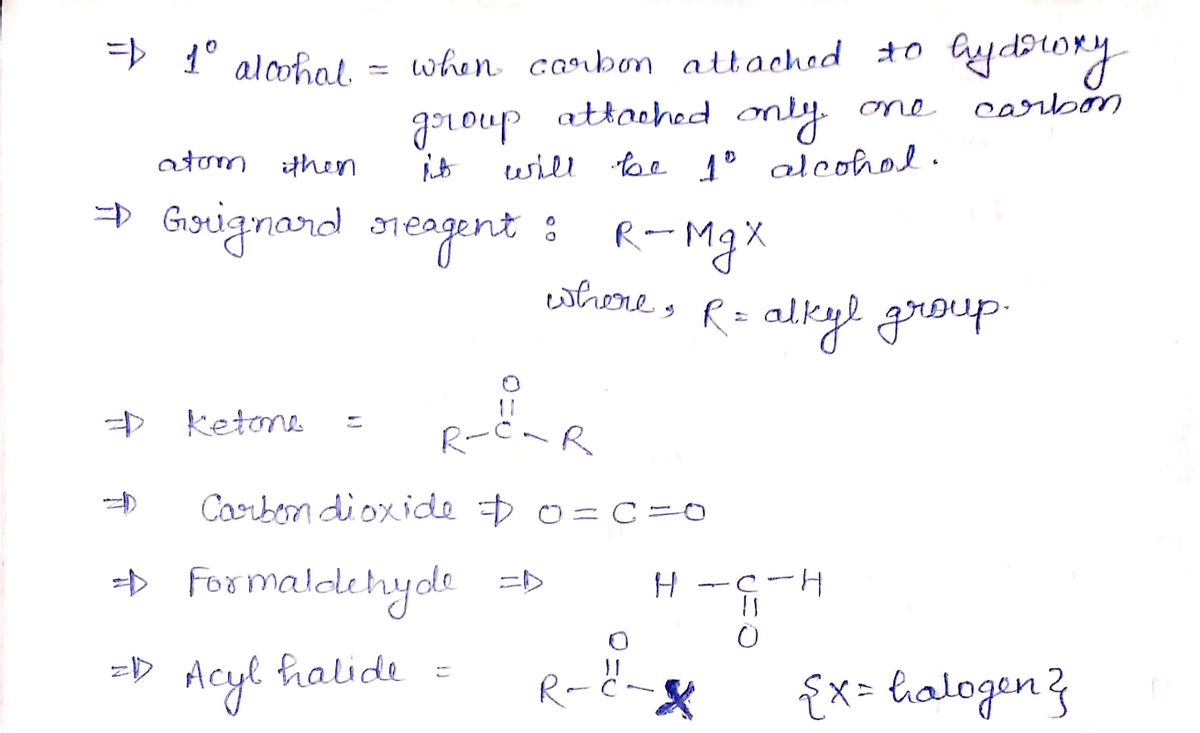 ⇒ 1° alcohal = when carbon attached to hydroxy
group attached only one carbon
atom then it will be 1° alcohol.
⇒ Grignard reagent : R-MgX
where, R = alkyl group.
O
||
⇒ Ketone = R-C-R
⇒ Carbondioxide ⇒ O=C=O
⇒ Formaldehyde ⇒ H-C-H
||
O
O
||
⇒ Acyl halide = R-C-X {X = halogen}